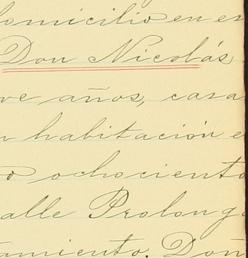 domicilio en e
Don Nicolás
ve años, casa
habitación e
ochocient
alle Prolong
amiento. Don